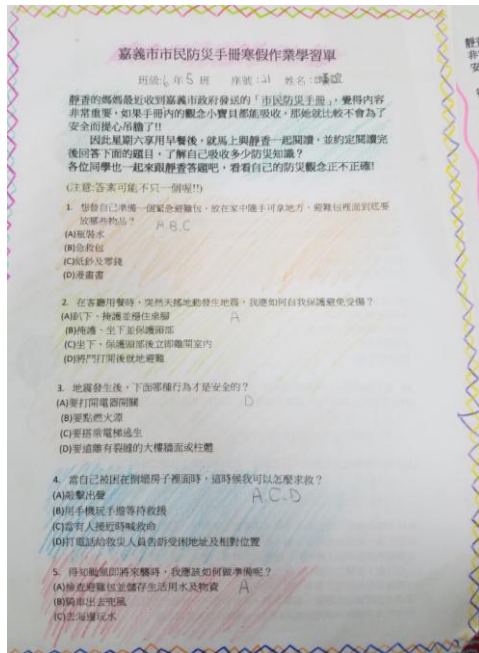 嘉義市市民防災手冊寒假作業學習單
班級:6年5班 座號:21 姓名:
靜香的媽媽最近收到嘉義市政府發送的「市民防災手冊」，覺得內容
非常重要，如果手冊內的觀念小寶貝都能吸收，那她就比較不會為了
安全而提心吊膽了!!
因此星期六享用早餐後，就馬上與靜香一起閱讀，並約定閱讀完
後回答下面的題目，了解自己吸收多少防災知識？
各位同學也一起來跟靜香答題吧，看看自己的防災觀念正不正確!
(注意:答案可能不只一個喔!!)
1. 想替自己準備一個緊急避難包，放在家中隨手可拿地方，避難包裡面到底要
放哪些物品？ A.B.C
(A)瓶裝水
(B)急救包
(C)紙鈔及零錢
(D)漫畫書
2. 在客廳用餐時，突然天搖地動發生地震，我應如何自我保護避免受傷？
(A)趴下、掩護並穩住桌腳 A
(B)掩護、坐下並保護頭部
(C)坐下、保護頭部後立即離開室內
(D)將門打開後就地避難
3. 地震發生後，下面哪種行為才是安全的？
(A)要打開電器開關 D
(B)要點燃火源
(C)要搭乘電梯逃生
(D)要遠離有裂縫的大樓牆面或柱體
4. 當自己被困在倒塌房子裡面時，這時候我可以怎麼求救？
(A)敲擊出聲 A.C.D
(B)用手機玩手遊等待救援
(C)當有人接近時喊救命
(D)打電話給救災人員告訴受困地址及相對位置
5. 得知颱風即將來襲時，我應該如何做準備呢？
(A)檢查避難包並儲存生活用水及物資 A
(B)騎車出去兜風
(C)去海邊玩水